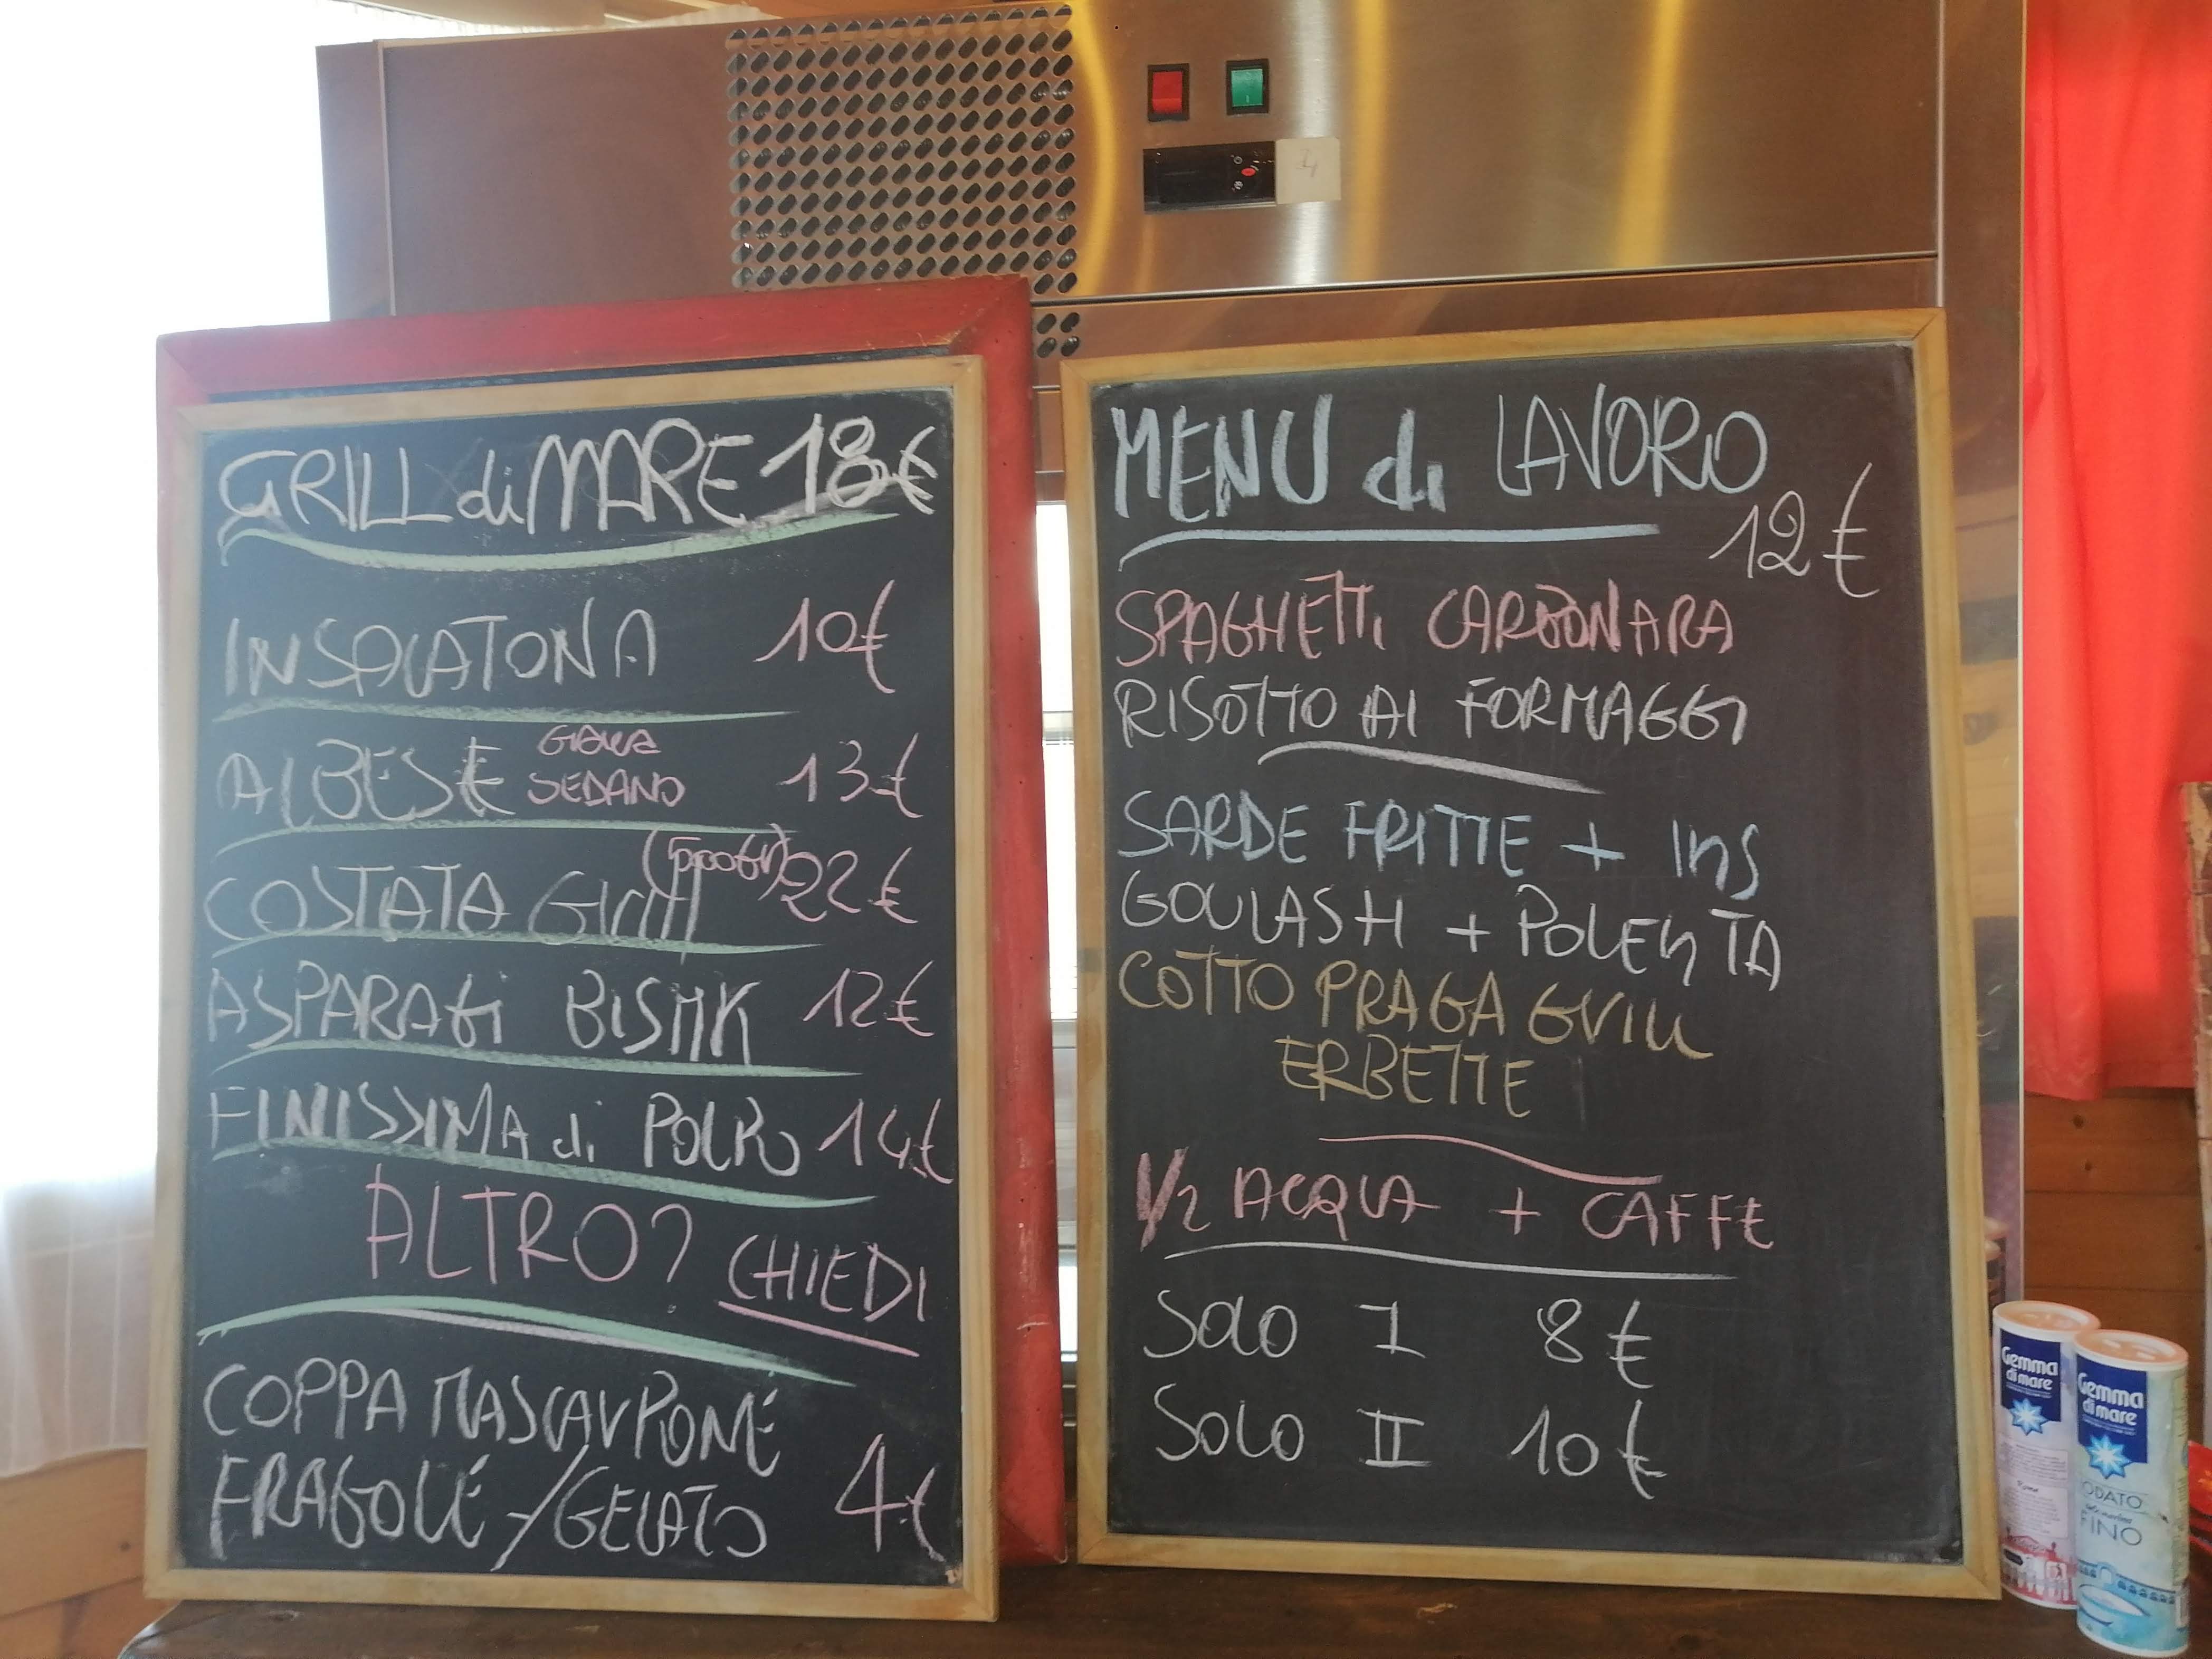 GRILL di MARE 18€
INSALATONA 10€
ALBESE GRANA SEDANO 13€
COSTATA GRILL (500GR) 22€
ASPARAGI BISMK 12€
FINISSIMA di POLPO 14€
ALTRO? CHIEDI
COPPA MASCARPONE
FRAGOLE /GELATO 4€
MENU di LAVORO
12€
SPAGHETTI CARBONARA
RISOTTO AI FORMAGGI
SARDE FRITTE + INS
GOULASH + POLENTA
COTTO PRAGA GRILL
ERBETTE
1/2 ACQUA + CAFFE
SOLO I 8€
SOLO II 10€
Gemma
di mare
Gemma
di mare
IODATO
FINO